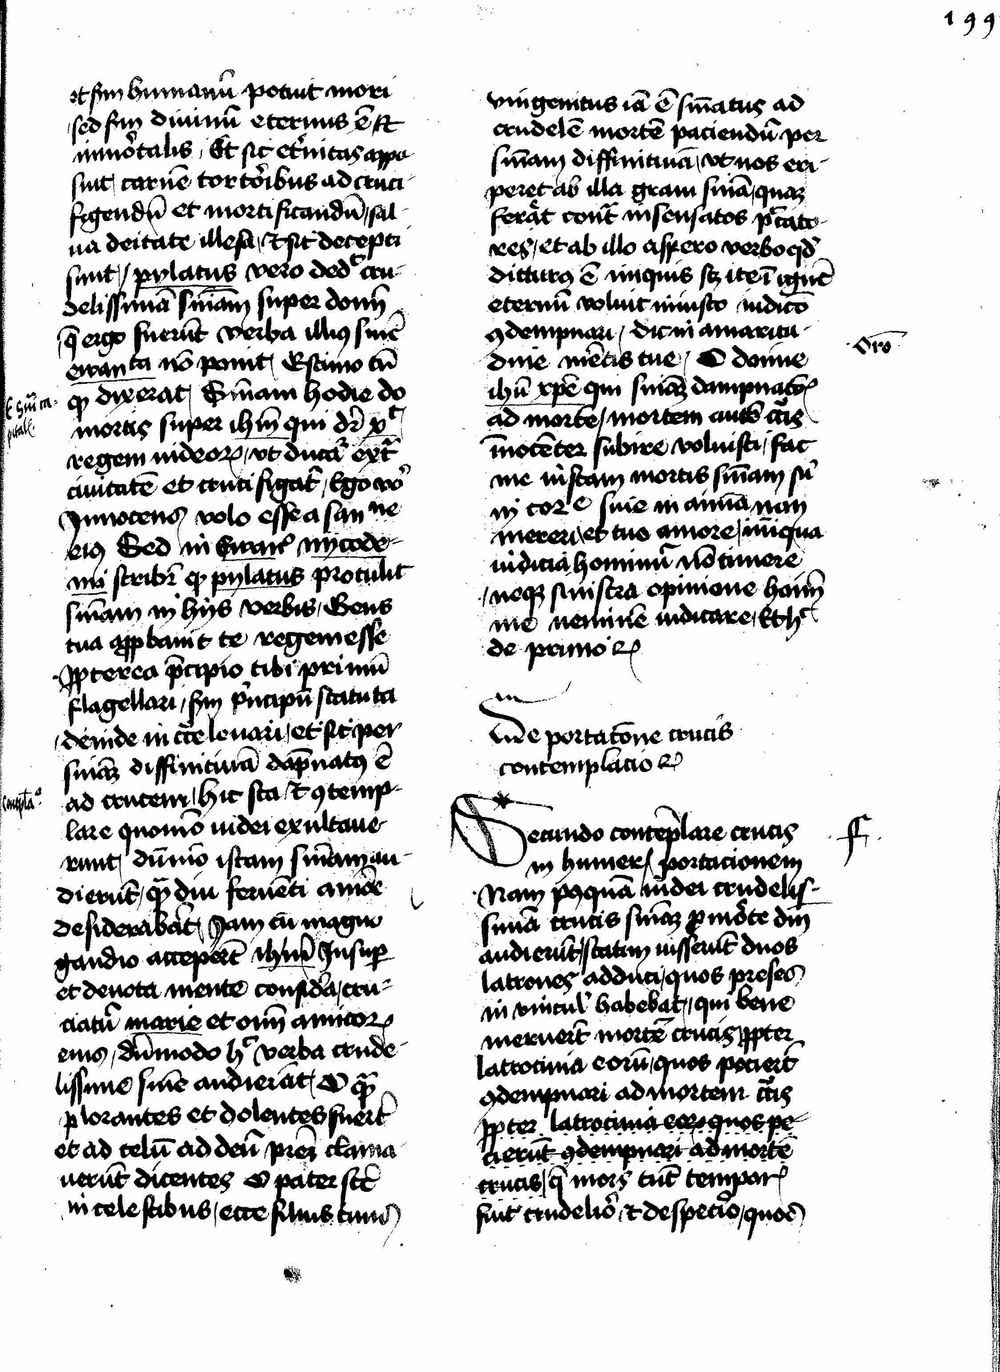 199
et scdm humanū potuit mori
sed scdm diuinū eternus ē et
inmortalis, Et sic etnitas appo
suit carnē tortoribus ad cruci-
figendū et mortificandū, sal-
ua deitate illesa, et sic decepti
sunt, pylatus vero dedit cru-
delissimā sniam super domi
q ergo fuerūt verba illiꝰ snīe
ewan ta nō ponit, Estimo tn
qꝫ dixerat, Sniam hodie do
mortis super ihm qui dr xpc
regem iudeoꝝ, vt ducat ext
ciuitatē et crucifigat, Ego vo
Innocens volo esse a san ne
eiꝰ Sed in ewan nycode-
mi scribit qꝫ pylatus protulit
sniam in hijs verbis, Gens
tua appbauit te regem esse
ꝓpterea p̄cipio tibi primū
flagellari, scdm p̄ncipū statuta
deinde in cruce leuari, et sic per
sniaꝫ diffinitiuā dāpnatꝰ ē
ad crucem, hic sta et ꝯtemp-
lare quomō iudei exultaue-
runt, dūmō istam sniam au-
dierūt, qꝫ diu feruēti amore
desiderabāt, Jam cū magno
gaudio acceperūt ihm Insuper
et deuota mente considera, cru-
ciatū marie et oīm amicoꝝ
eius, dūmodo hec verba crude-
lissime snīe audierāt, O qꝫ
plorantes et dolentes fuerūt
et ad celū ad deū prem clama-
uerūt dicentes O pater scē
in celestibus, ecce filius tuus
E snia ca-
pitale
Contēpla°
vnigenitus iā ē sniatus ad
crudelē mortē paciendū per
sniam diffinitiuā, vt nos eri-
peret ab illa graui snia, quaꝫ
ferāt contra insensatos pccato-
res, et ab illo aspero verbo qd
dicturꝰ ē iniquis scꝫ ite in ignē
eternū voluit iniusto iudicio
ꝯdempnari, dic in amaritu-
dine mētis tue, O domine
ihū xpē qui sniaꝫ dampnatōis
ad mortē, mortem autē crucis
innocēter subire voluisti, fac
me iustam mortis sniam sup
in cor e sine in aiam non
mereri, et tuo amore, iniqua
iudicia hominū nō timere
neqꝫ sinistra opinione homi
me neminē iudicare, Et hec
de primo ꝛc
Oro
De portatōne crucis
contemplacio ꝛc
Secundo contēplare crucis
in humeris portacionem
Nam postquā iudei crudelis-
simā crucis sniaꝫ pro morte dni
audierūt, statim iusserūt duos
latrones adduci, quos preses
in vinculis habebat, qui bene
meruerūt mortē crucis ꝓpter
latrocinia eorū, quos pecierūt
ꝯdempnari ad mortem crucis
ꝓpter latrocinia eoꝝ quos pe-
cierūt ꝯdempnari ad mortē
crucis, q mors tunc temporis
fuit crudelior, et despectior, quos